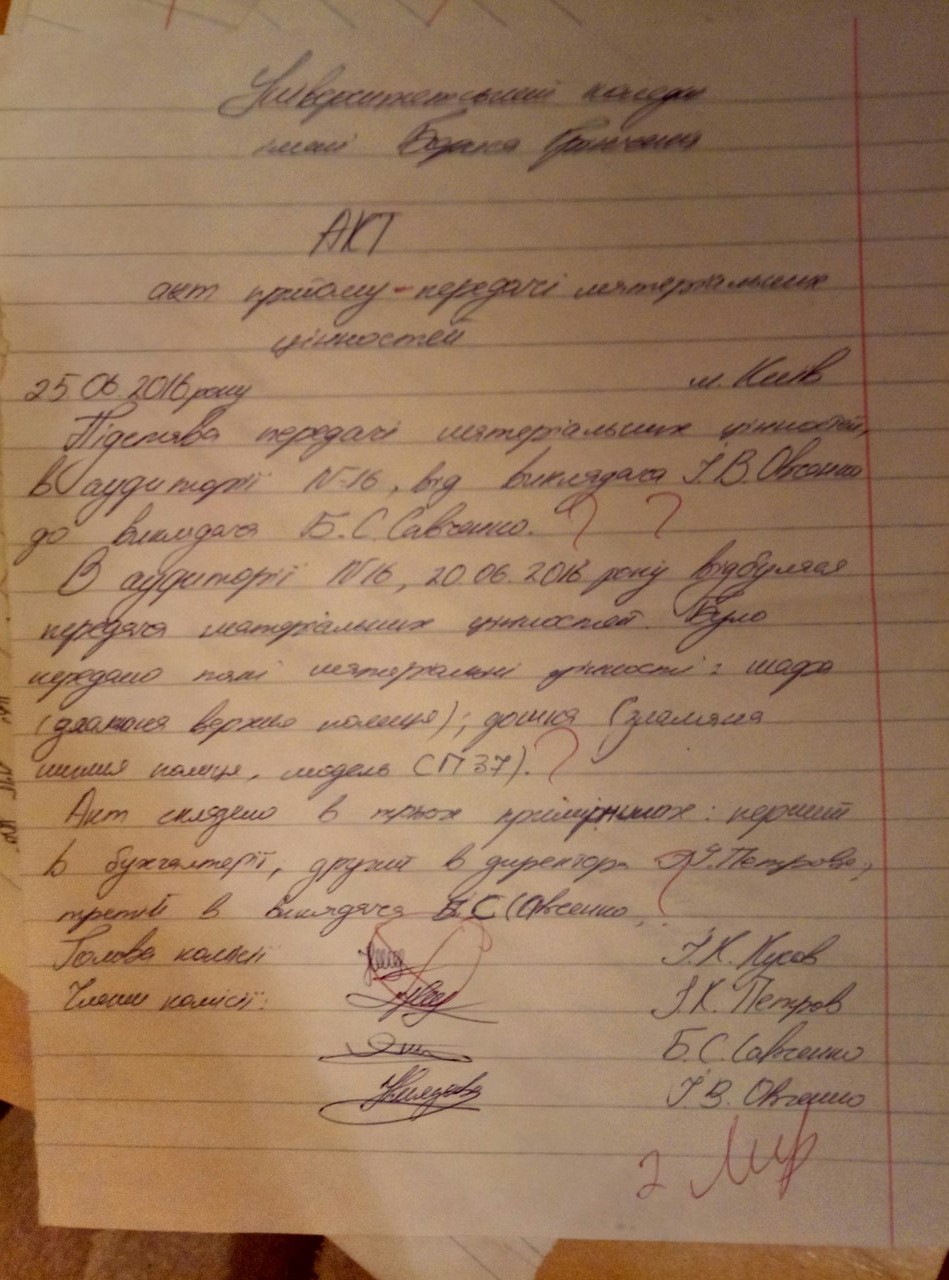 Університетський коледж
імені Бориса Грінченка
АКТ
акт прийому-передачі матеріальних
цінностей
25.06.2016 року м. Київ
Підстава передачі матеріальних цінностей,
в аудиторії №16, від викладача І.В. Овченко
до викладача Б.С. Савченко. ? ?
В аудиторії №16, 20.06.2016 року відбулася
передача матеріальних цінностей. Було
передано такі матеріальні цінності: шафа
верхня полиця); дошка (зламана
нижня полиця, модель СП 37). ?
Акт складено в трьох примірниках: перший
в бухгалтерії, другий в директора Петрова,
третій в викладача Б.С. Овсенко,
Голова комісії І.К. Куров
Члени комісії: І.К. Петров
Б.С. Савченко
І.В. Овченко
2